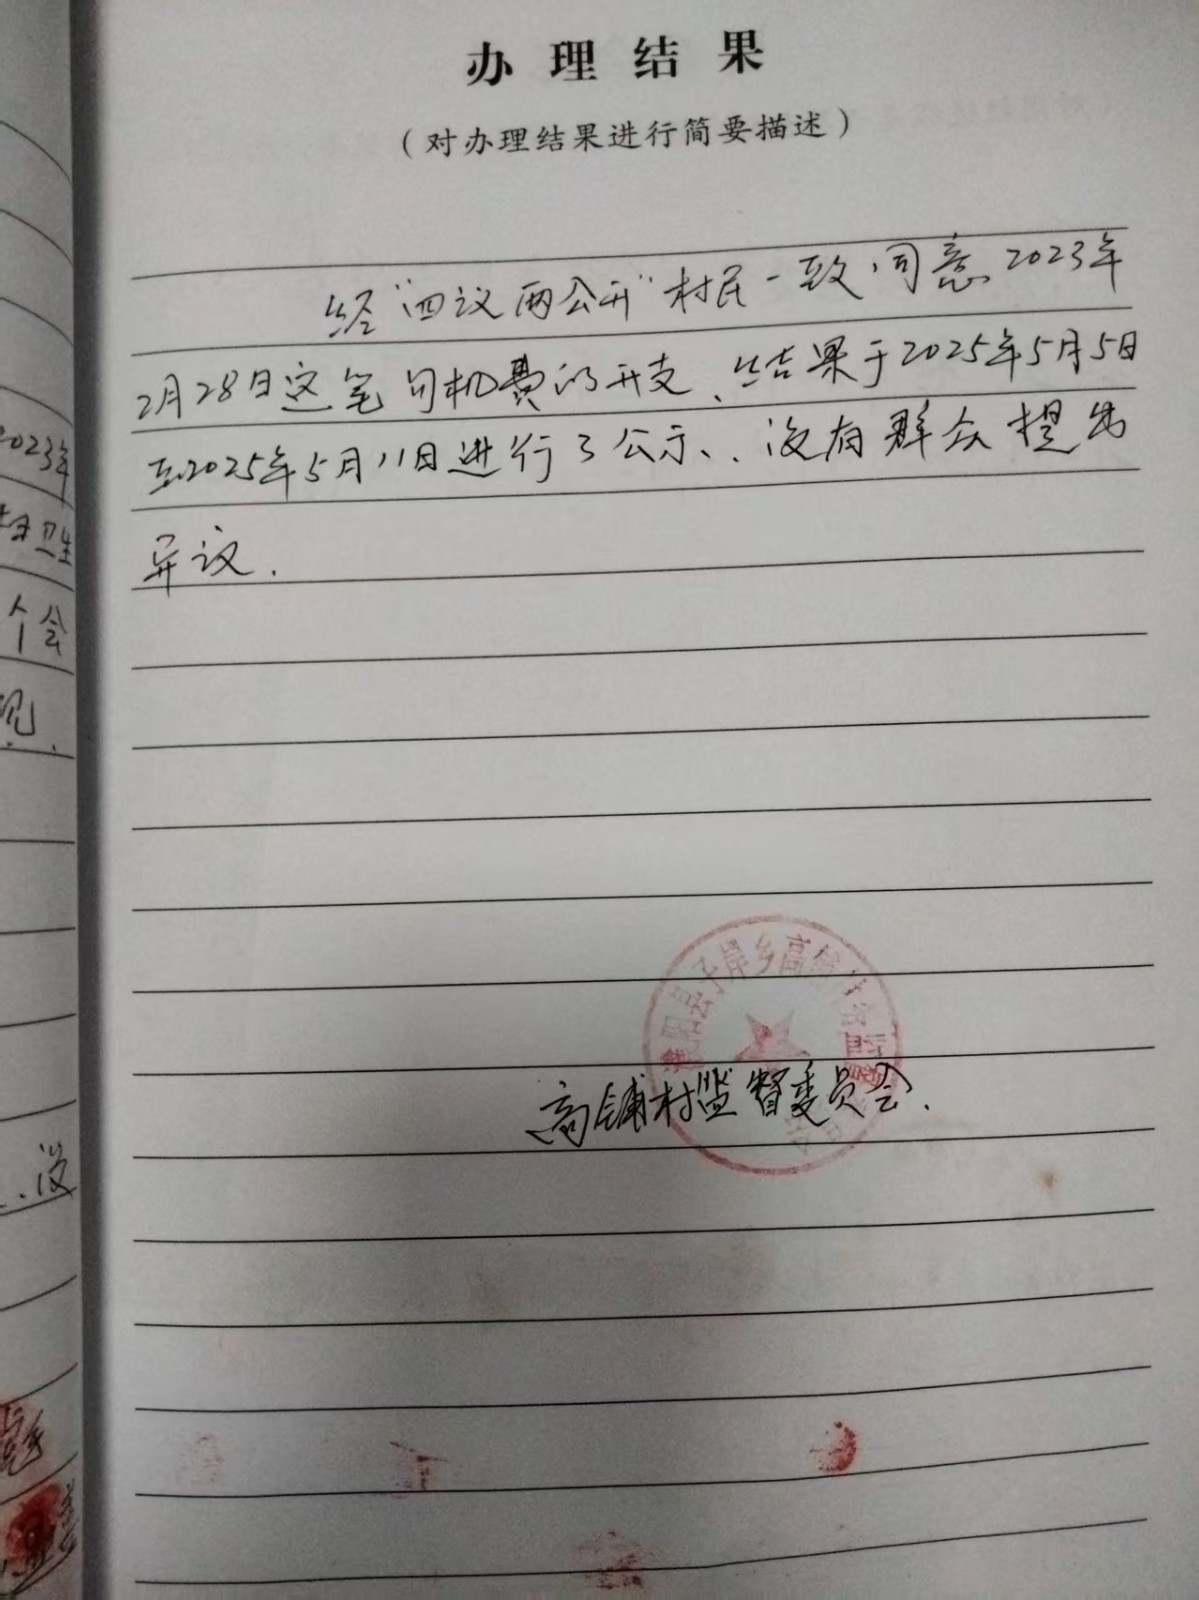 办理结果
（对办理结果进行简要描述）
经“四议两公开”村民一致同意2023年
2月28日这笔勾机费的开支、结果于2025年5月5日
至2025年5月11日进行了公示、没有群众提出
异议.
子岸乡高铺村
高铺村监督委员会.
2023年
卫生
个会
现.
.没